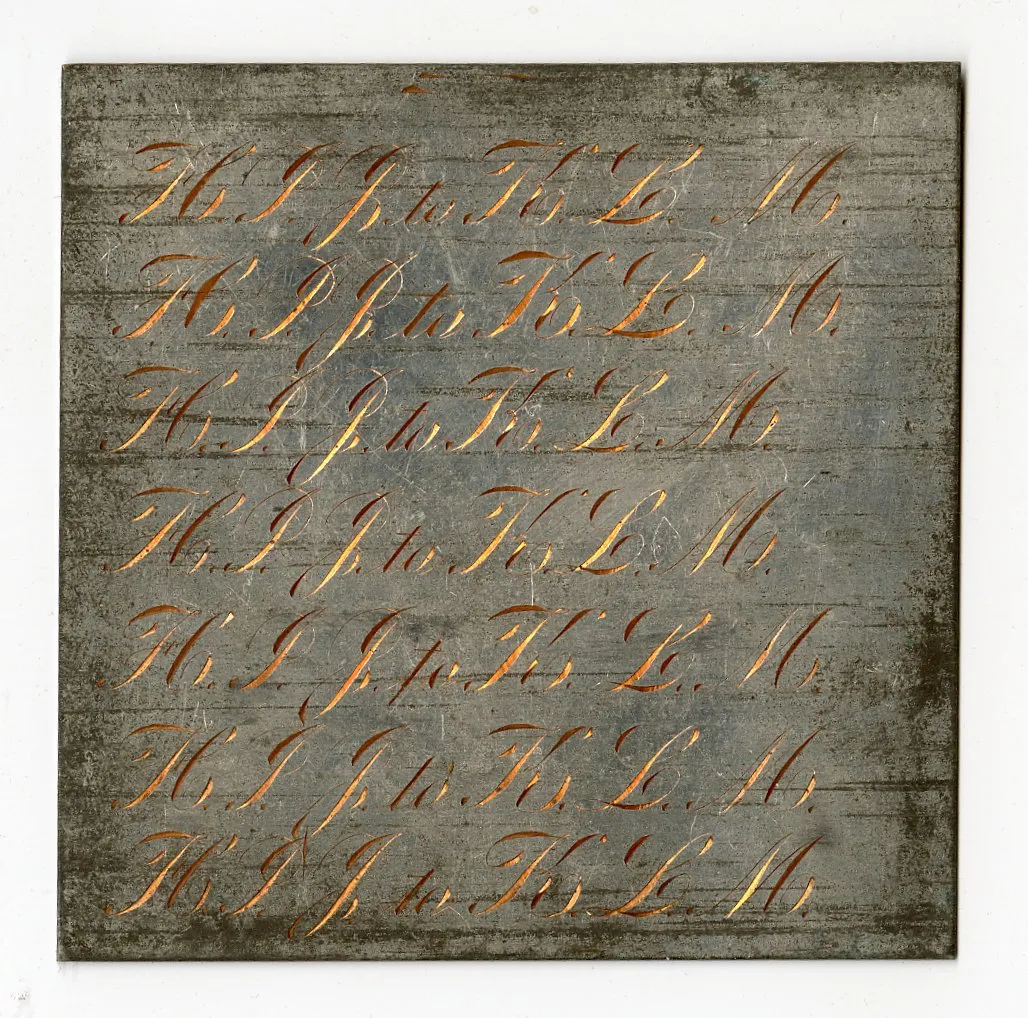 H. I. J. to K. L. M.
H. I. J. to K. L. M.
H. I. J. to K. L. M.
H. I. J. to K. L. M.
H. I. J. to K. L. M.
H. I. J. to K. L. M.
H. I. J. to K. L. M.